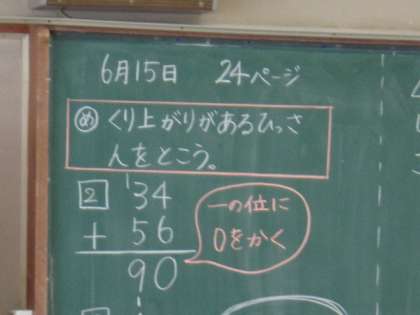 6月15日 24ページ
め くり上がりがあるひっさ
んをとこう。
2 34
+ 56
90
一の位に
0をかく